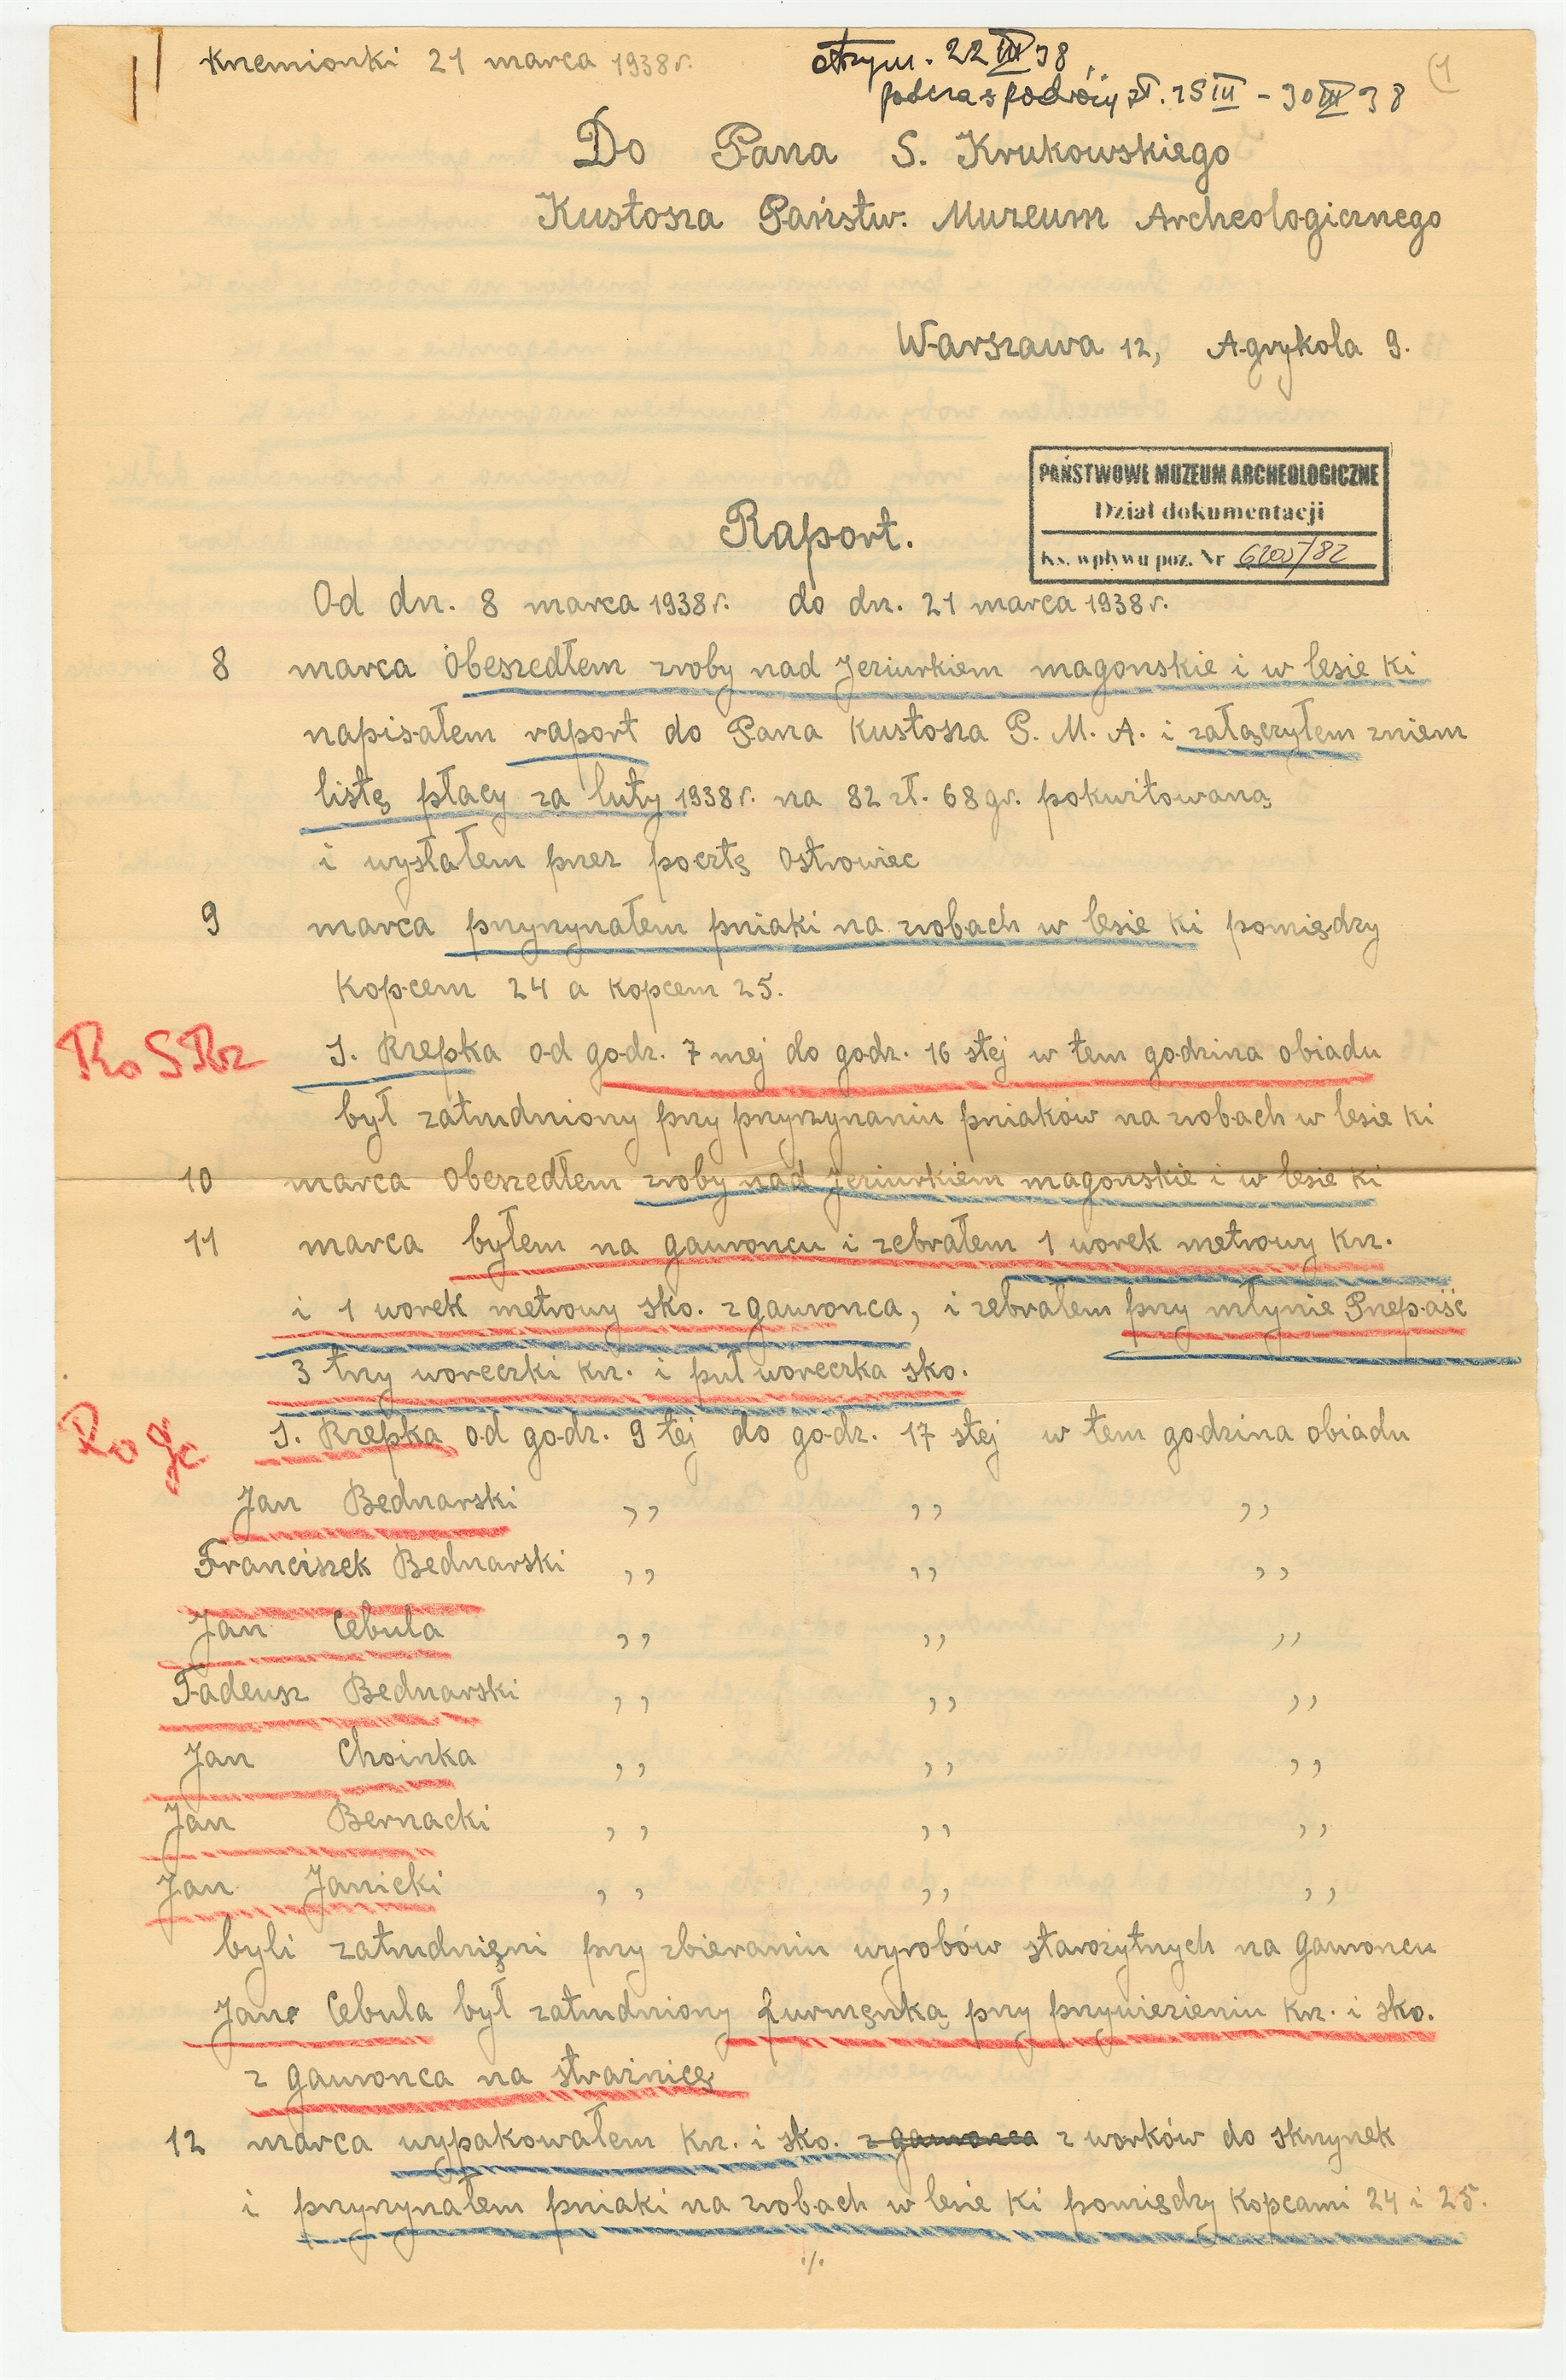 Krzemionki 21 marca 1938 r.
otrzym. 22 III 38,
podczas podróży sł. 25 III - 30 III 38
(1
Do Pana S. Krukowskiego
Kustosza Państw. Muzeum Archeologicznego
Warszawa 12, Agrykola 9.
PAŃSTWOWE MUZEUM ARCHEOLOGICZNE
Dział dokumentacji
Ks. wpływu poz. Nr /82
Raport.
Od dn. 8 marca 1938 r. do dn. 21 marca 1938 r.
8 marca obeszedłem zroby nad Jeziurkiem magonskie i w lesie ki
napisałem raport do Pana Kustosza P. M. A. i załączyłem zniem
listę płacy za luty 1938 r. na 82 zł. 68 gr. pokwitowaną
i wysłałem przez pocztę Ostrowiec
9 marca przyrzynałem pniaki na zrobach w lesie ki pomiędzy
Kopcem 24 a Kopcem 25.
Ro S Rz
J. Rzepka od godz. 7 mej do godz. 16 stej w tem godzina obiadu
był zatrudniony przy przyrzynaniu pniaków na zrobach w lesie ki
10 marca obeszedłem zroby nad Jeziurkiem magonskie i w lesie ki
11 marca byłem na gawroncu i zebrałem 1 worek metrowy krz.
i 1 worek metrowy sko. z gawronca, i zebrałem przy młynie Przepaść
3 trzy woreczki krz. i puł woreczka sko.
Ro
J. Rzepka od godz. 9 tej do godz. 17 stej w tem godzina obiadu
Jan Bednarski ,, ,, ,,
Franciszek Bednarski ,, ,, ,,
Jan Cebula ,, ,, ,,
Tadeusz Bednarski ,, ,, ,,
Jan Choinka ,, ,, ,,
Jan Bernacki ,, ,, ,,
Jan Janicki ,, ,, ,,
byli zatrudnięni przy zbieraniu wyrobów starożytnych na gawroncu
Jan Cebula był zatrudniony furmęnką przy przywiezieniu krz. i sko.
z gawronca na strażnicę
12 marca wypakowałem krz. i sko. z gawronca z worków do skrzynek
i przyrzynałem pniaki na zrobach w lesie ki pomiędzy Kopcami 24 i 25.
./.